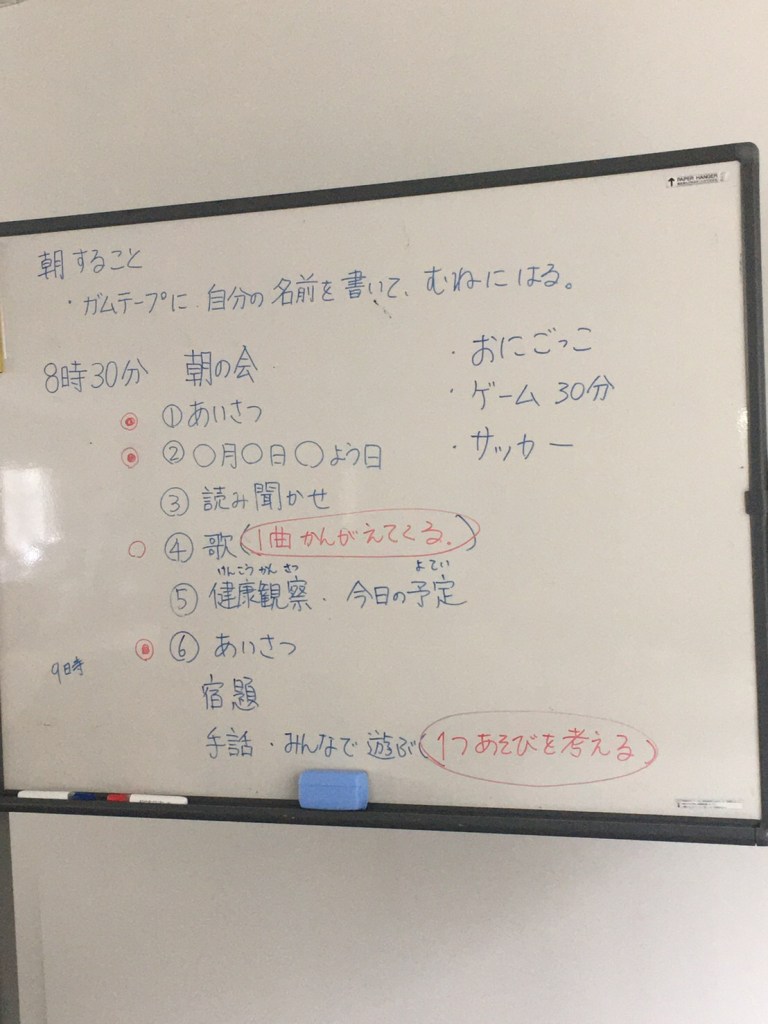 ↑ PAPER HANGER
朝すること
・ガムテープに自分の名前を書いて、むねにはる。
8時30分 朝の会
①あいさつ
②○月○日○よう日
③読み聞かせ
④歌(1曲かんがえてくる。)
けんこうかんさつ よてい
⑤健康観察・今日の予定
9時
⑥あいさつ
宿題
手話・みんなで遊ぶ(1つあそびを考える)
・おにごっこ
・ゲーム 30分
・サッカー